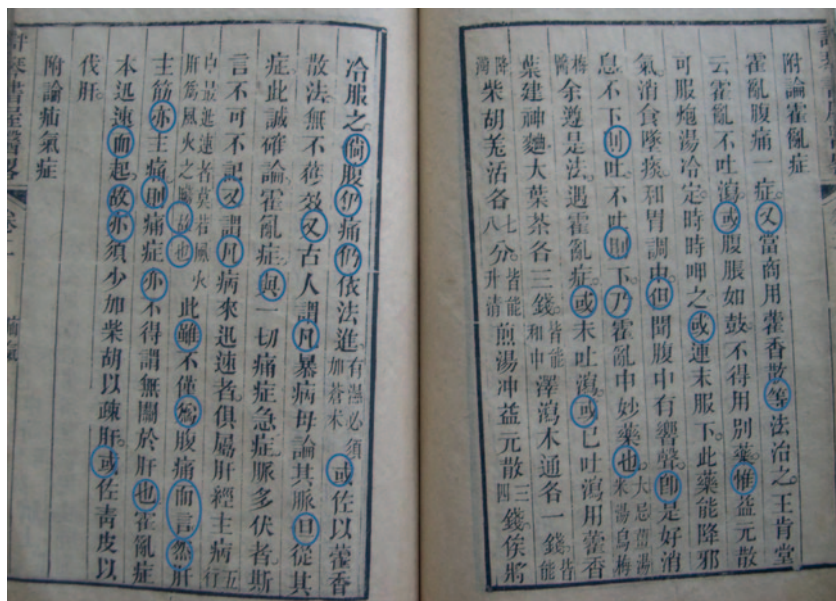 附論霍亂症
霍亂腹痛一症又當商用藿香散等法治之王肯堂
云霍亂不吐瀉或腹脹如鼓不得用別藥惟益元散
可服炮湯冷定時時呷之或連末服下此藥能降邪
氣消食墜痰和胃調中但聞腹中有響聲即是好消
息不下則吐不吐則下乃霍亂中妙藥也大忌薑湯米湯烏梅
梅醬余遵是法遇霍亂症或未吐瀉或已吐瀉用藿香
葉建神麯大葉茶各三錢皆能和中澤瀉木通各一錢皆能
降濁柴胡羌活各七八分皆能升清煎湯冲益元散三四錢俟將
冷服之倘腹仍痛仍依法進有濕必須加蒼朮或佐以藿香
散法無不獲效又古人謂凡暴病毋論其脈旦從其
症此誠確論霍亂症與一切痛症急症脈多伏者斯
言不可不記又謂凡病來迅速者俱屬肝經主病五行
中最迅速者莫若風火肝爲風火之臟故也此雖不僅爲腹痛而言然肝
主筋亦主痛則痛症亦不得謂無關於肝也霍亂症
本迅速而起故亦須少加柴胡以疎肝或佐青皮以
伐肝
附論疝氣症